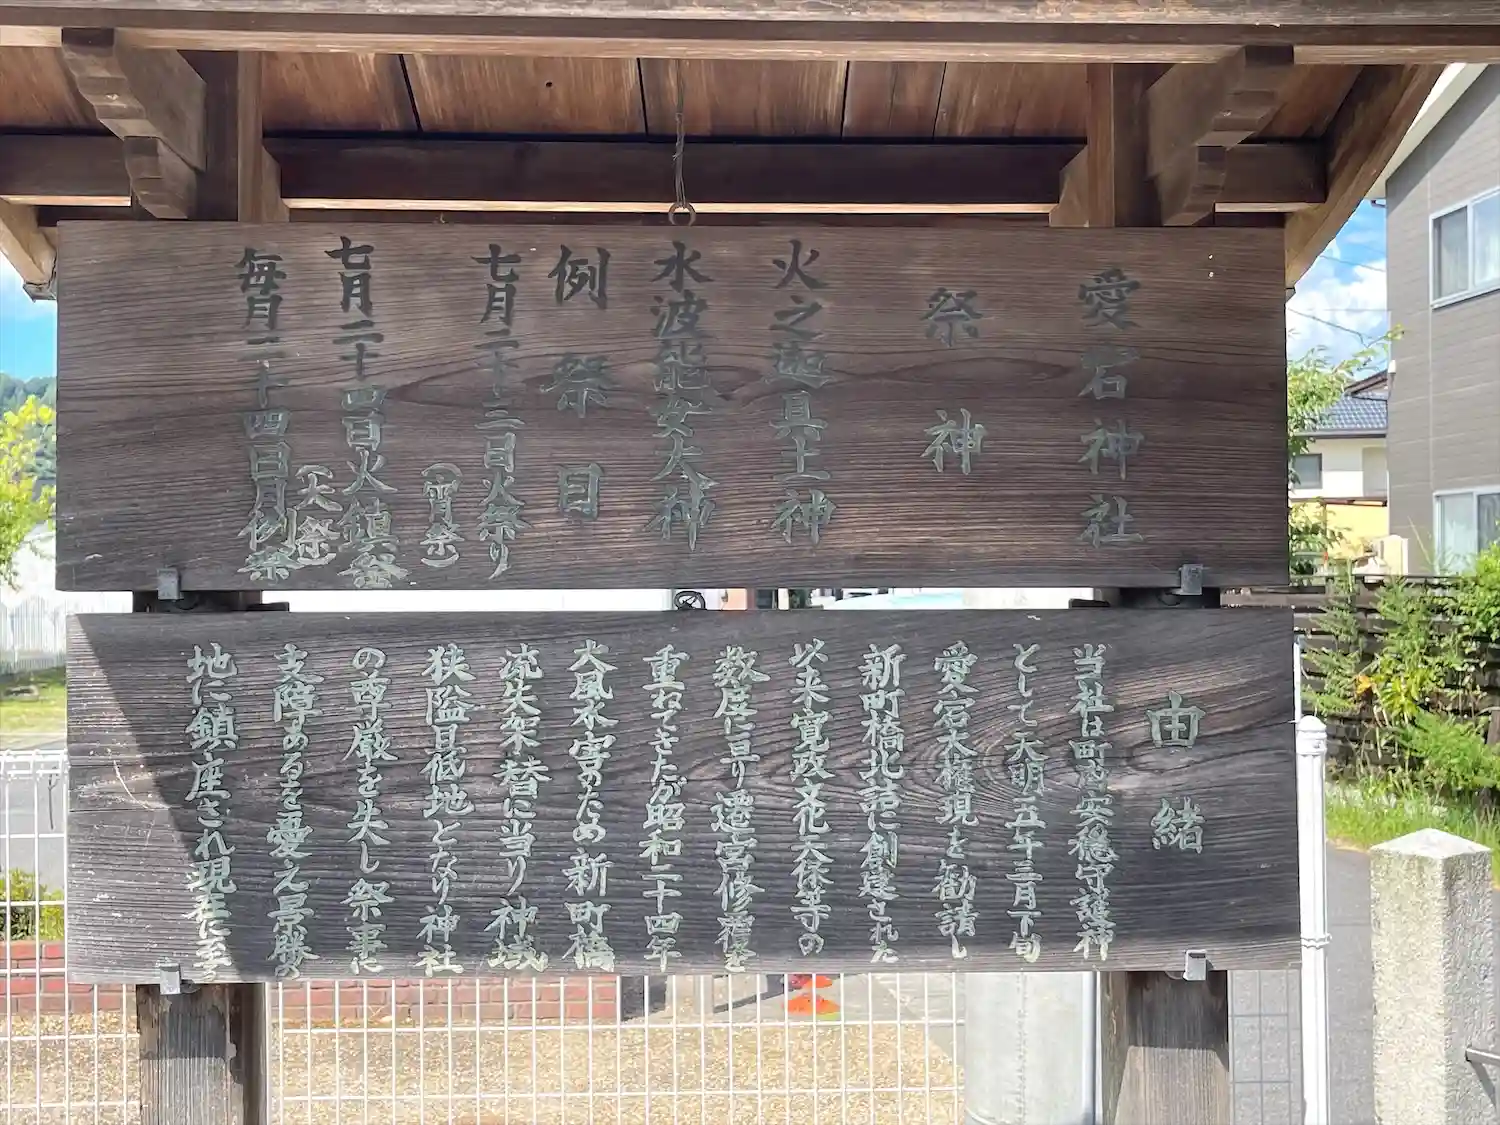 愛宕神社
祭神
火之迦具土神
水波能女大神
例祭日
七月二十三日火祭り
(宵祭)
七月二十四日火鎮祭
(大祭)
毎月二十四日月例祭
由緒
当社は町內安穏守護神
として天明五年三月下旬
愛宕大権現を勧請し
新町橋北詰に創建された
以来寛政文化天保等の
数度に亘り遷宮修復を
重ねてきたが昭和二十四年
大風水害のため新町橋
流失架替に当り神域
狭隘且低地となり神社
の尊厳を失し祭事に
支障あるを憂え景勝の
地に鎮座され現在に至る